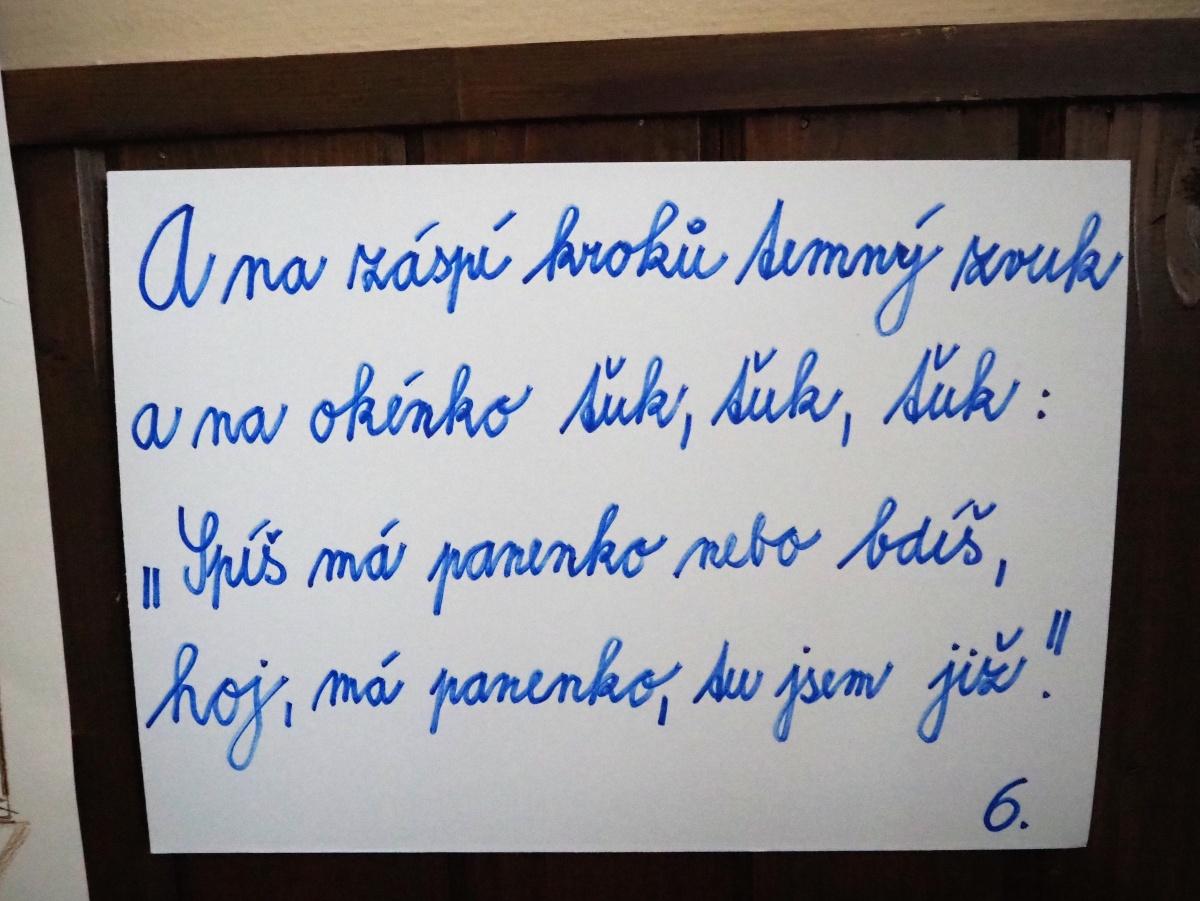 A na záspí kroků temný zvuk
a na okénko ťuk, ťuk, ťuk:
„Spíš má panenko nebo bdíš,
hoj, má panenko, tu jsem již."
6.